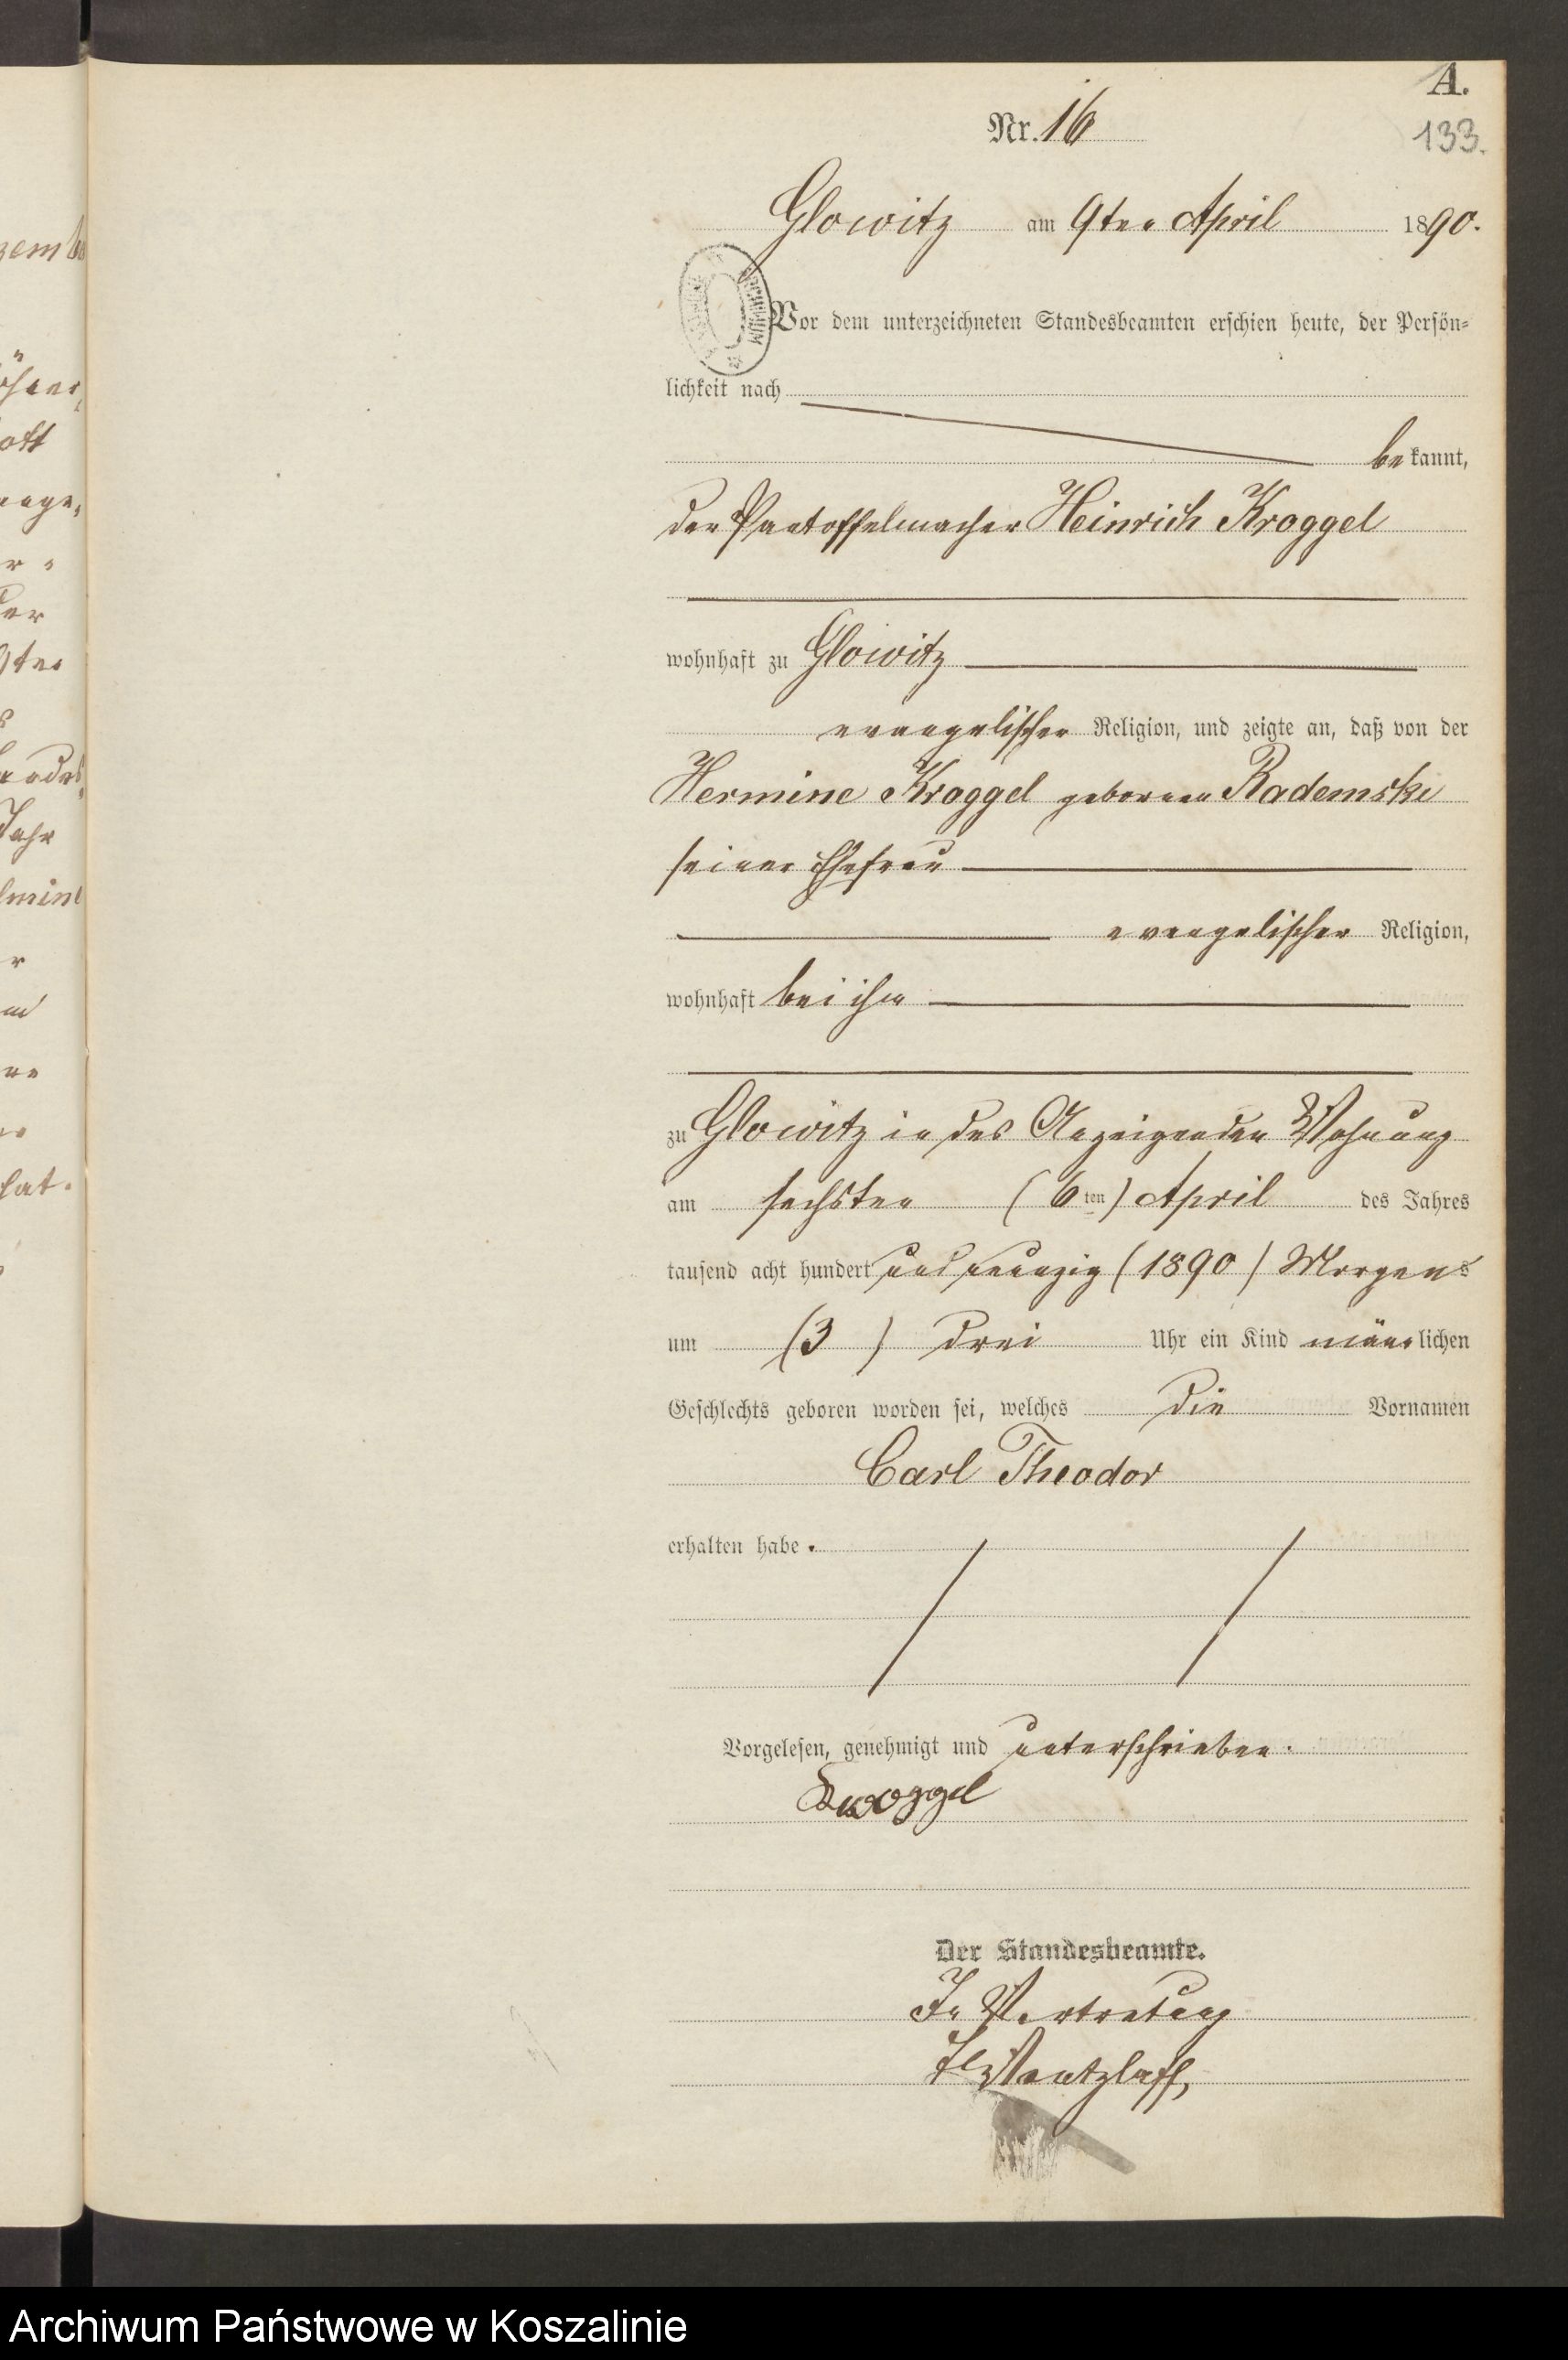 A.
133.
Nr. 16
Glowitz am 9ten April 1890.
Vor dem unterzeichneten Standesbeamten erschien heute, der Persön-
lichkeit nach
bekannt,
der Pantoffelmacher Heinrich Kroggel
wohnhaft zu Glowitz
evangelischer Religion, und zeigte an, daß von der
Hermine Kroggel gebornen Rademske
seiner Ehefrau
evangelischer Religion,
wohnhaft bei ihm
zu Glowitz in des Anzeigenden Wohnung
am sechsten (6ten) April des Jahres
tausend acht hundert und neunzig (1890) Morgens
um (3) drei Uhr ein Kind männlichen
Geschlechts geboren worden sei, welches die Vornamen
Carl Theodor
erhalten habe.
Vorgelesen, genehmigt und unterschrieben.
Kroggel
Der Standesbeamte.
In Vertretung
Wentzlaff,
zemb
ott
Jahr
hat.
Archiwum Państwowe w Koszalinie